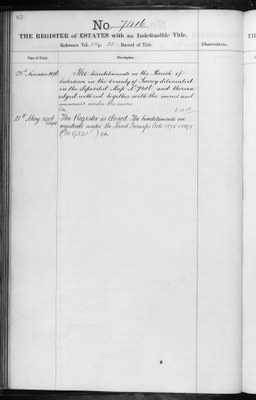 No. 7416
THE REGISTER of ESTATES with an Indefeasible Title.
Reference Vol. p. Record of Title.
Observations.
Date of Entry.
Description.
The hereditaments in the Parish of
in the County of Surrey delineated
on the deposited Map No. 7416 and thereon
edged with red together with the mines and
minerals under the same
21st May
The Register is closed. The hereditaments are
registered under the Land Transfer Acts 1875 & 1897